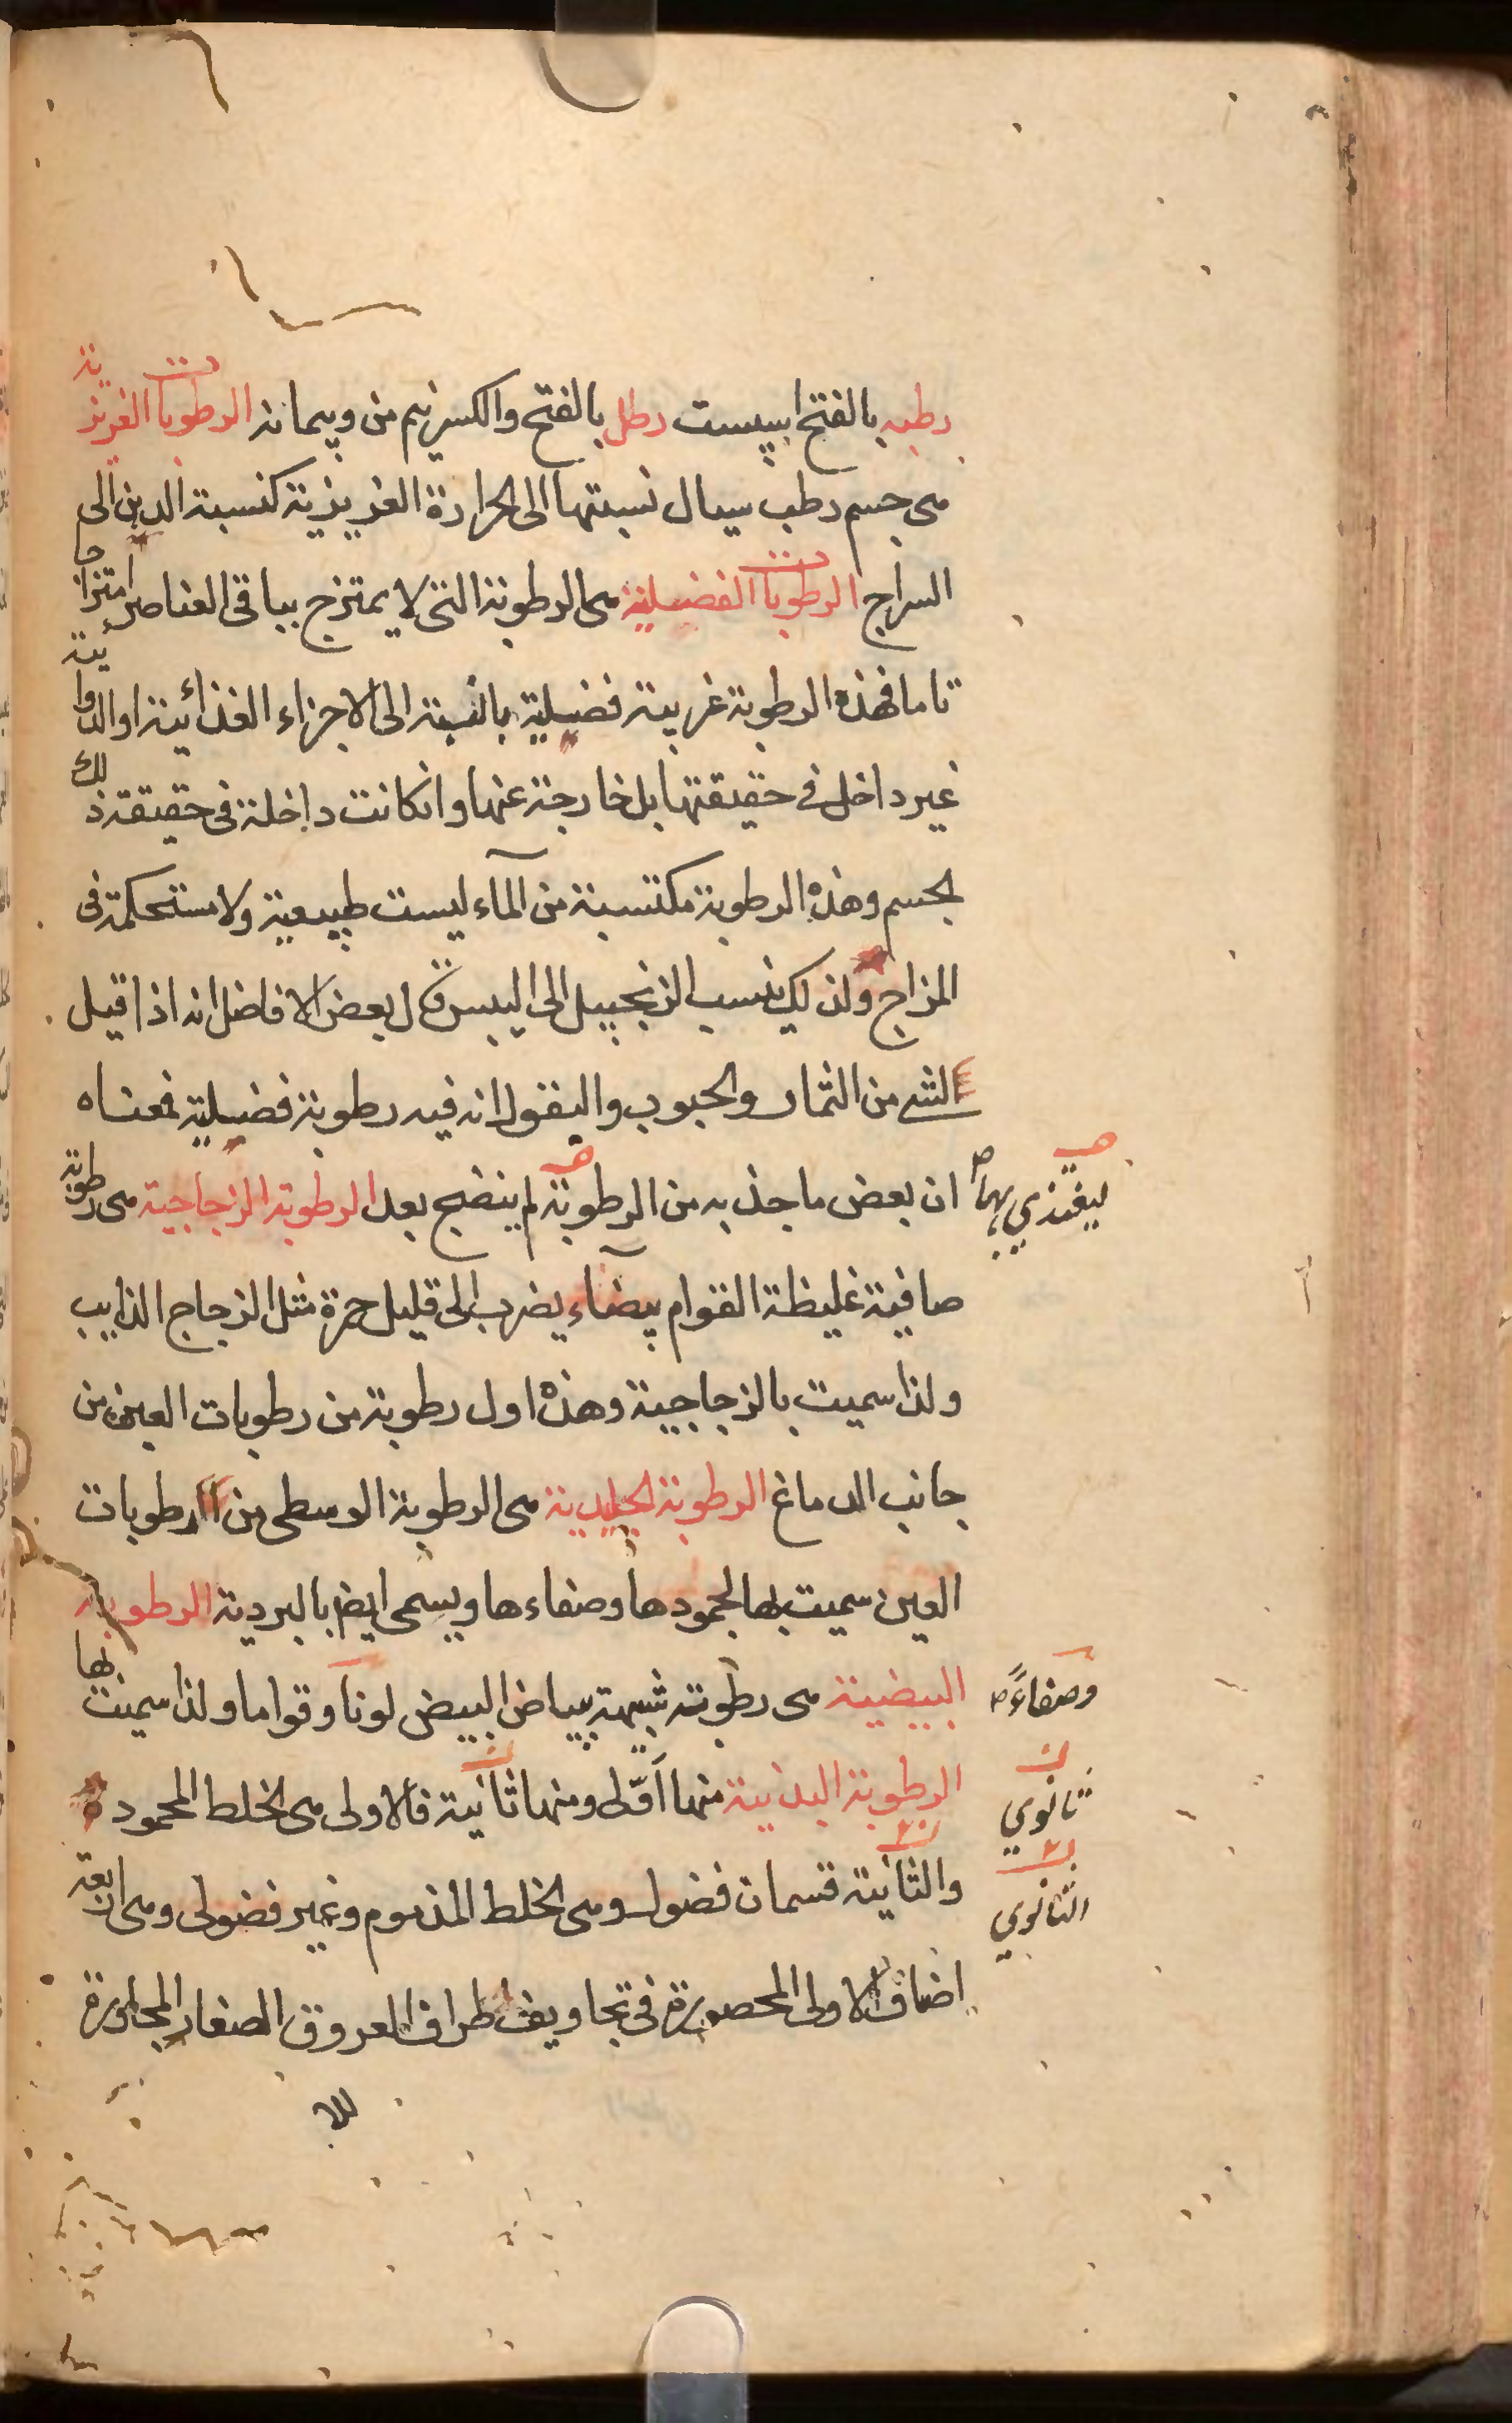 رطبه بالفتح اسپست رطل بالفتح والكسر نيم من وپيمانه الرطوبات الغريزية
هى جسم رطب سيال نسبتها الى الحرارة الغريزية كنسبة الدهن الى
السراج الرطوبات الفضلية هى الرطوبة التى لا يمتزج بباقى العناصر امتزاجا
تاما فهذه الرطوبة غريبة فضلية بالنسبة الى الاجزاء الغذائية او الدوائية
غير داخل فى حقيقتها بل خارجة عنها وانكانت داخلة فى حقيقة ذلك
لجسم وهذه الرطوبة مكتسبة من المآء ليست طبيعية ولا مستحكمة فى
المزاج ولذلك ينسب الزنجبيل الى اليبس قال بعض الافاضل انه اذا قيل
الشى من الثمار والحبوب والبقول انه فيه رطوبة فضلية فمعناه
ان بعض ما جذبه من الرطوبة لم ينضج بعد الرطوبة الزجاجية هى رطوبة
ليغتذي بها
صافية غليظة القوام بيضآء يضرب الى قليل حمرة مثل الزجاج الذايب
ولذا سميت بالزجاجية وهذه اول رطوبة من رطوبات العين من
جانب الدماغ الرطوبة الجليدية هى الرطوبة الوسطى من الرطوبات
العين سميت بها لجمودها وصفاءها ويسمى ايضا بالبردية الرطوبة
البيضية هى رطوبة شبيهة ببياض البيض لونا وقواما ولذا سميت بها
وصفاءً
الرطوبة البدنية منها اَوّلى ومنها ثانية فالاولى هى الخلط المحمود
ثانوي
والثانية قسمان فضول وهى الخلط المذموم وغير فضولى وهى اربعة
الثانوي
اضاف الاولى المحصورة فى تجاويف اطراف العروق الصغار المجاورة
للا